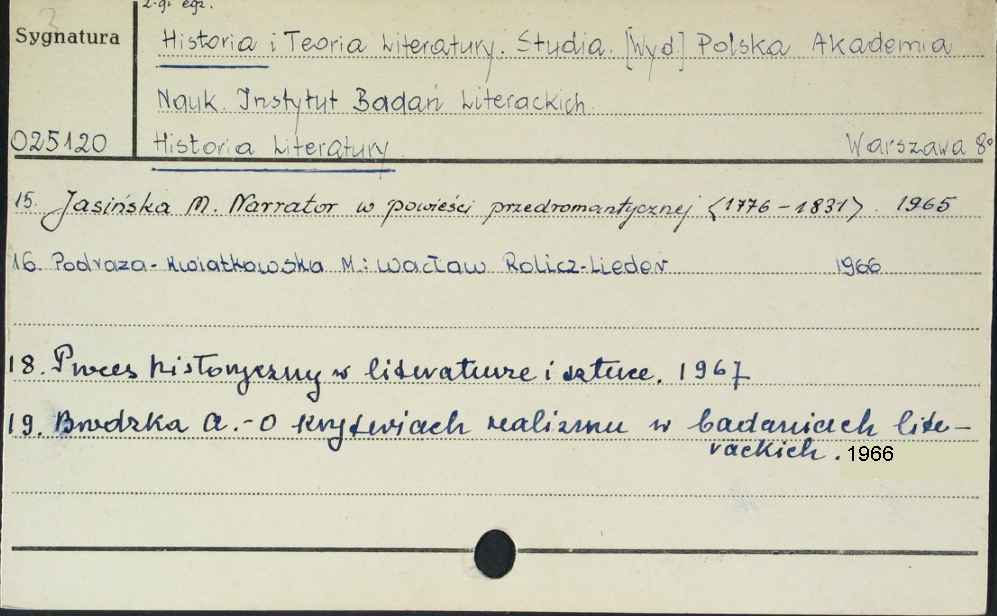 2-gi egz.
Sygnatura
Historia i Teoria Literatury. Studia. [Wyd.] Polska Akademia
Nauk. Instytut Badań Literackich.
025120 Historia Literatury Warszawa 8°
15. Jasińska M. Narrator w powieści przedromantycznej <1776-1831>. 1965
16. Podraza-Kwiatkowska M.: Wacław Rolicz-Lieder 1966
18. Proces historyczny w literaturze i sztuce. 1967
19. Brodzka A. - O kryteriach realizmu w badaniach lite-
rackich. 1966